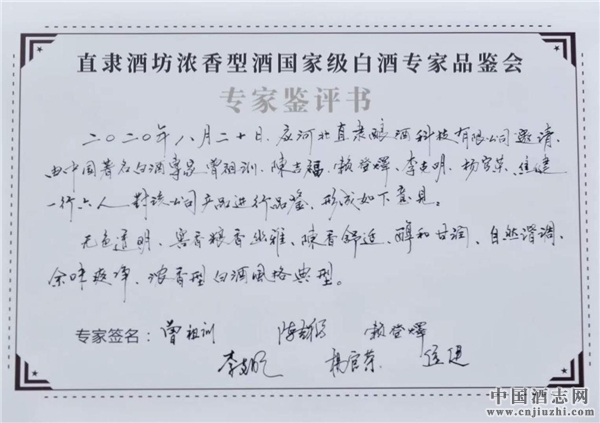 直隶酒坊浓香型酒国家级白酒专家品鉴会
专家鉴评书
二〇二〇年八月二十日,应河北直隶酿酒科技有限公司邀请,
由中国著名白酒专家曾祖训、陈吉福、赖登燡、李克明、杨官荣、
一行六人对该公司产品进行品鉴,形成如下意见。
无色透明、窖香粮香幽雅、陈香舒适、醇和甘润、自然谐调、
余味爽净、浓香型白酒风格典型。
专家签名:曾祖训 赖登燡
李克明 杨官荣
中国酒志网
www.cnjiuzhi.com